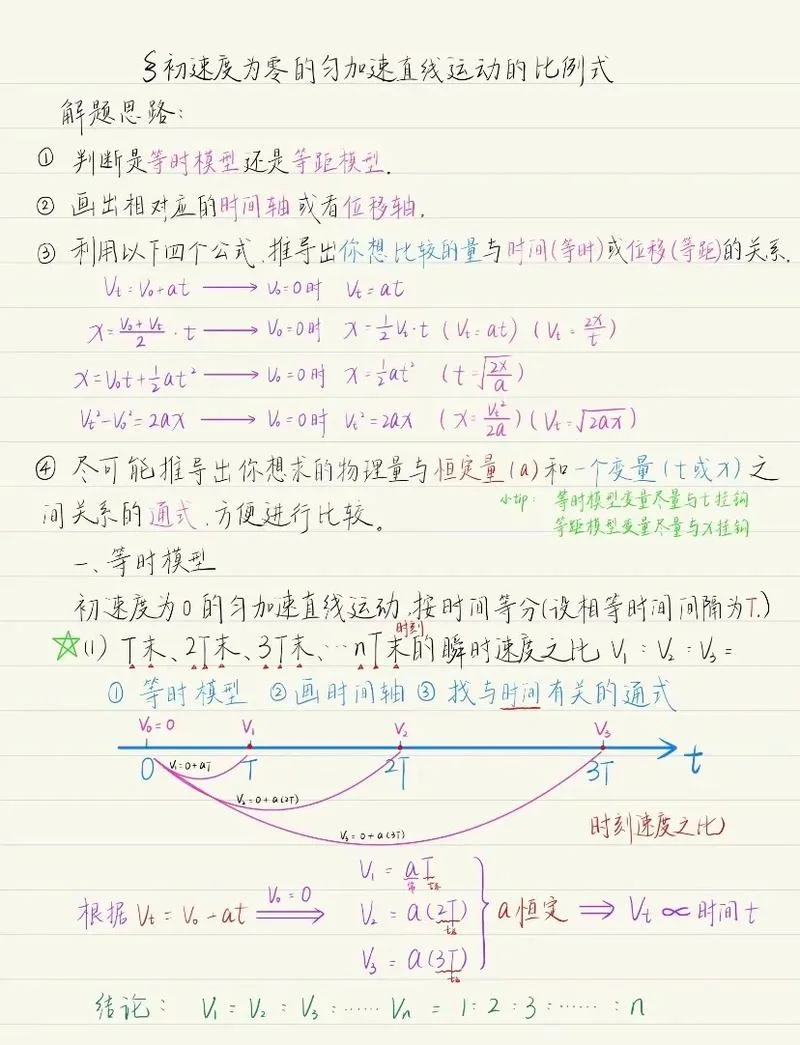 §初速度为零的匀加速直线运动的比例式
解题思路:
① 判断是等时模型还是等距模型.
② 画出相对应的时间轴或者位移轴.
③ 利用以下四个公式,推导出你想比较的量与时间(等时)或位移(等距)的关系.
Vt=V0+at ⟶ V0=0时 Vt=at
x=(V0+Vt)/2·t ⟶ V0=0时 x=½Vt·t (Vt=at) (Vt=2x/t)
x=V0t+½at² ⟶ V0=0时 x=½at² (t=√(2x/a))
Vt²-V0²=2ax ⟶ V0=0时 Vt²=2ax (x=Vt²/2a) (Vt=√(2ax))
④ 尽可能推导出你想求的物理量与恒定量(a)和一个变量(t或x)之
间关系的通式,方便进行比较。
小tip: 等时模型变量尽量与t挂钩
等距模型变量尽量与x挂钩
一、等时模型
初速度为0的匀加速直线运动,按时间等分(设相等时间间隔为T.)
时刻
☆(1) T末、2T末、3T末、…nT末的瞬时速度之比 V1:V2:V3=
① 等时模型 ②画时间轴 ③ 找与时间有关的通式
V0=0 V1 V2 V3
0 T 2T 3T t
V1=0+aT
V2=0+a(2T)
V3=0+a(3T)
时刻速度之比
V1=aT
根据 Vt=V0-at ⟹ V0=0 V2=a(2T) } a恒定 ⟹ Vt∝时间t
V3=a(3T)
结论: V1=V2:V3:…… Vn = 1:2:3:……:n